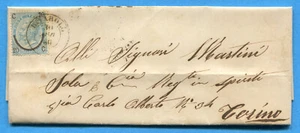 Alli Signori Martini
Sola & Cia Negti in spiriti
Via Carlo Alberto No 34
Torino